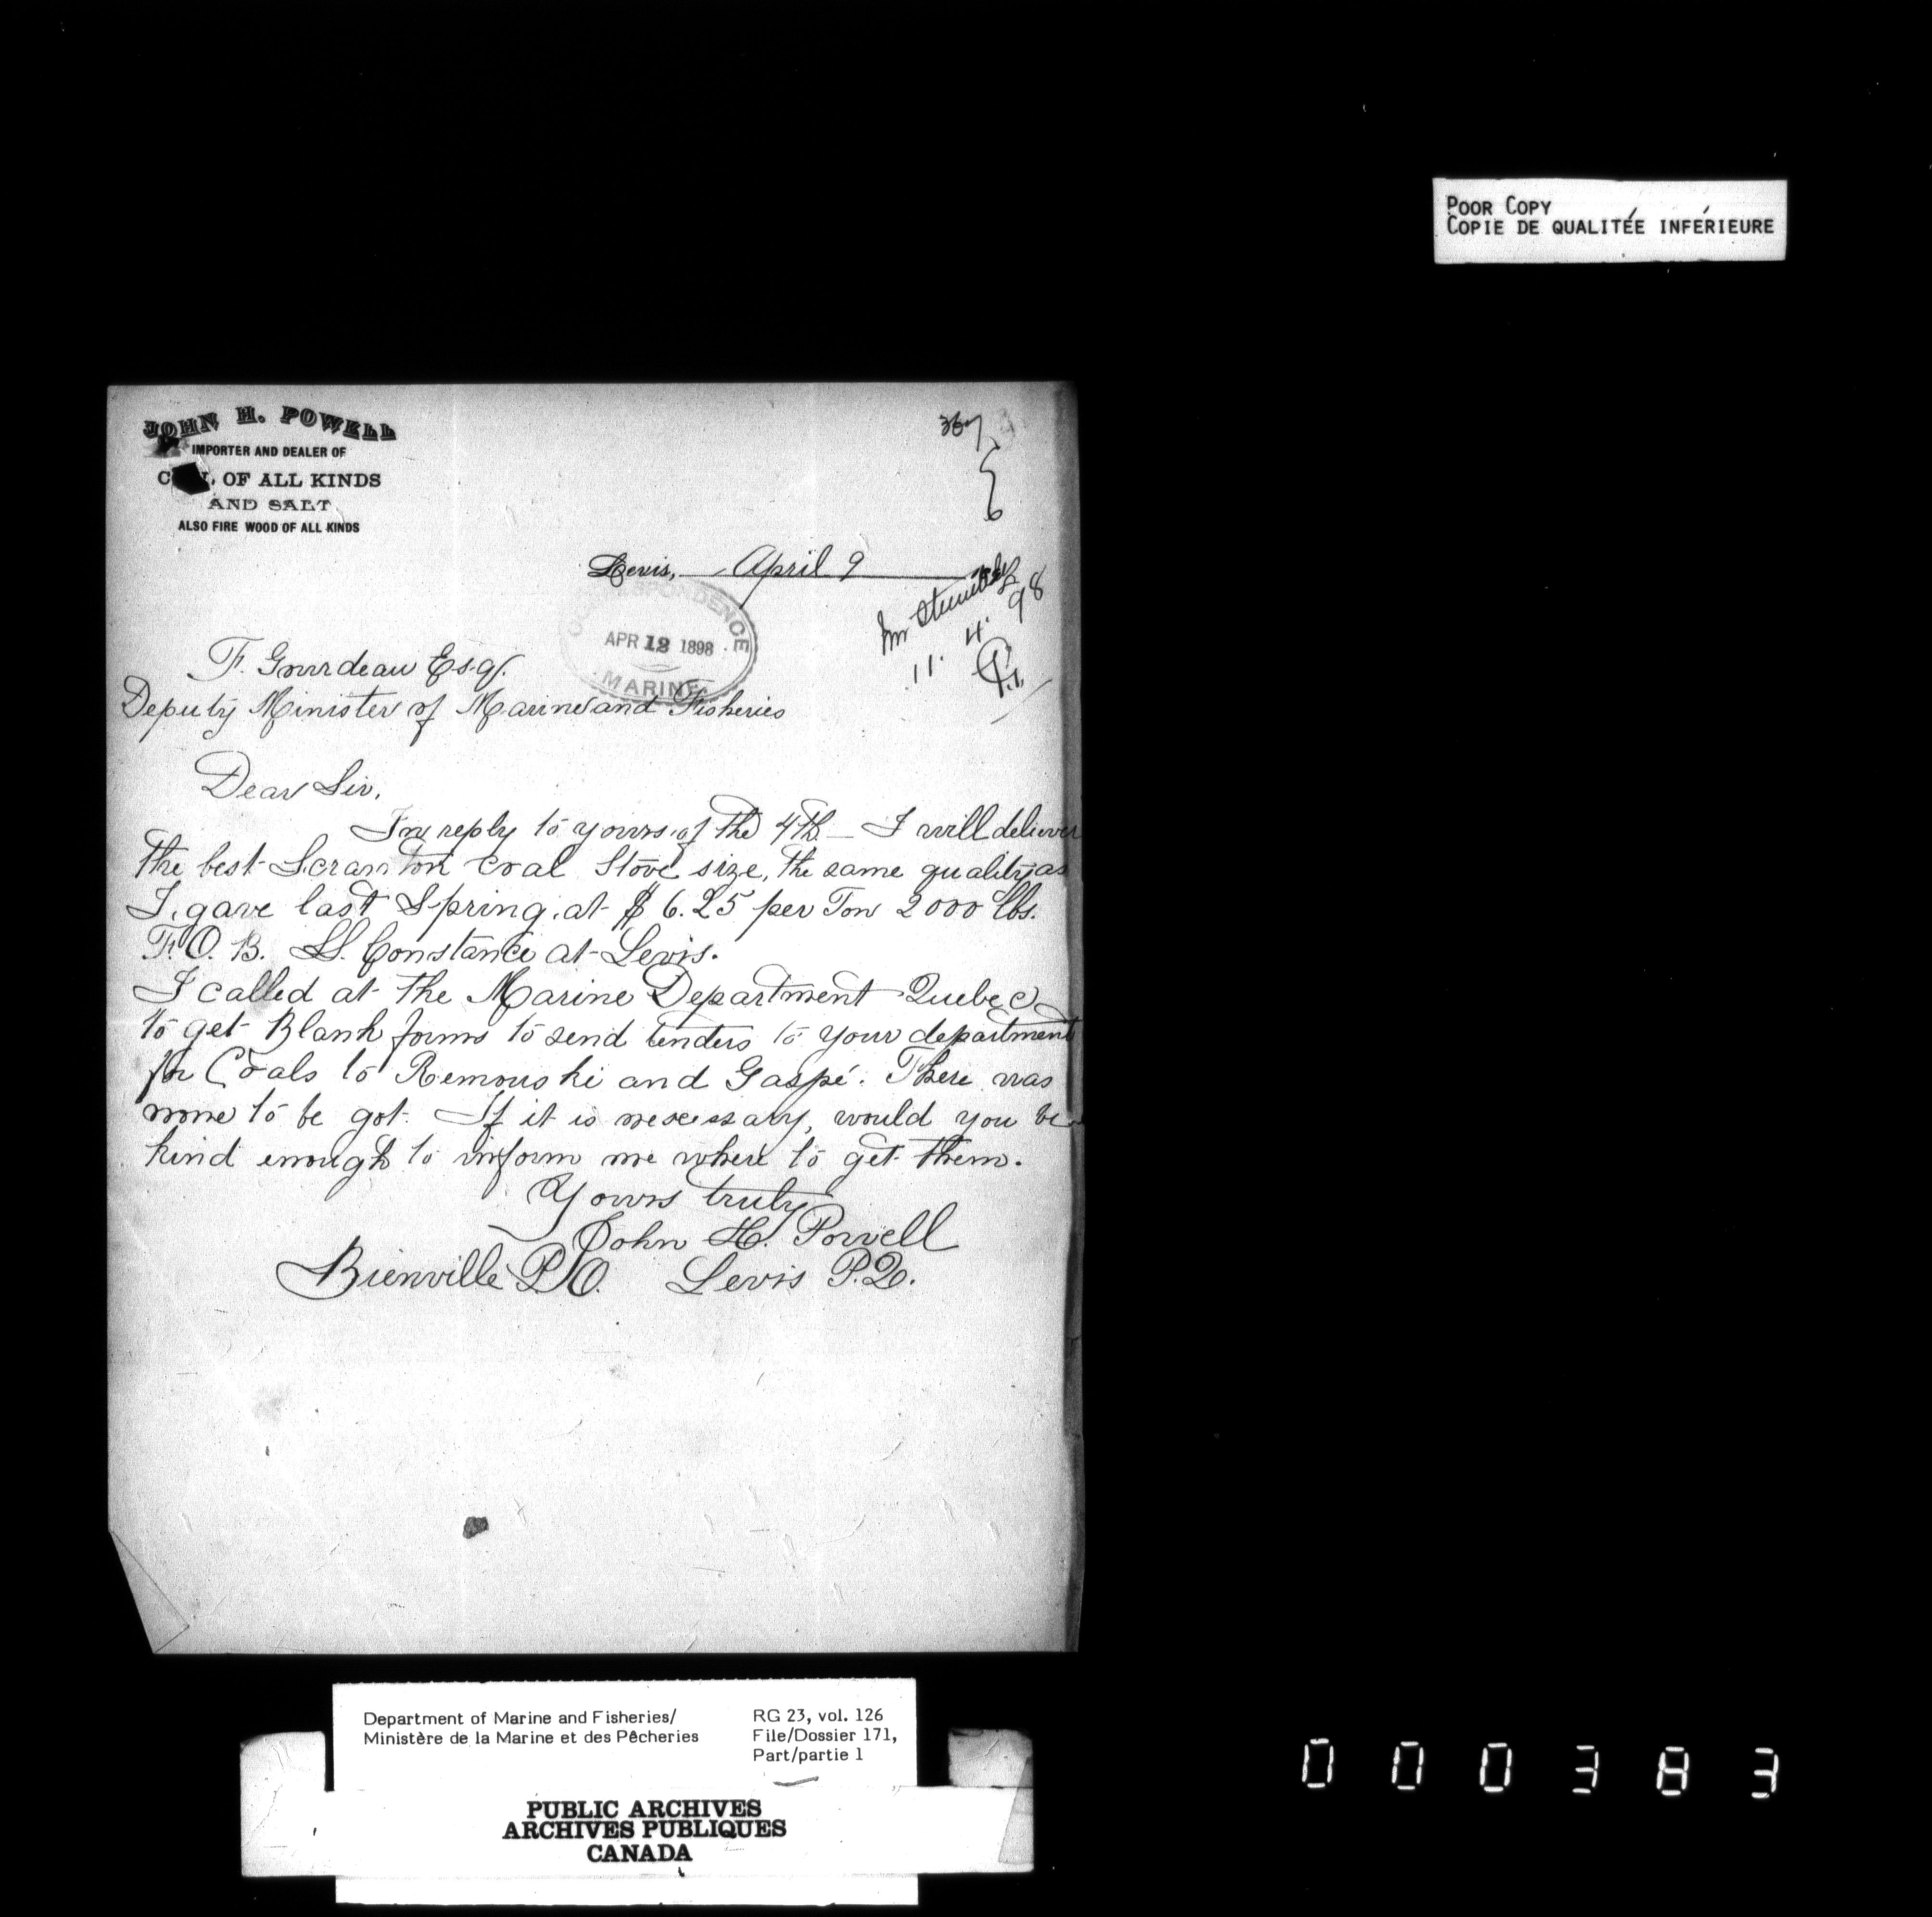 POOR COPY
COPIE DE QUALITÉE INFÉRIEURE
JOHN H. POWELL
IMPORTER AND DEALER OF
OF ALL KINDS
AND SALT
ALSO FIRE WOOD OF ALL KINDS
367
Levis, April 9
98
11. 4.
CORRESPONDENCE
APR 12 1898
MARINE
F. Gourdeau Esq.
Deputy Minister of Marine and Fisheries
Dear Sir,
In reply to yours of the 4th — I will deliver
the best Scranton Coal Stove size, the same quality as
I gave last Spring, at $6.25 per Ton 2000 lbs.
F.O.B. SS. Constance at Levis.
I called at the Marine Department Quebec
to get Blank forms to send tenders to your department
for Coals to Remouski and Gaspé. There was
none to be got. If it is necessary, would you be
kind enough to inform me where to get them.
Yours truly
John H. Powell
Bienville P.O. Levis P.Q.
Department of Marine and Fisheries/
Ministère de la Marine et des Pêcheries
RG 23, vol. 126
File/Dossier 171,
Part/partie 1
PUBLIC ARCHIVES
ARCHIVES PUBLIQUES
CANADA
000383